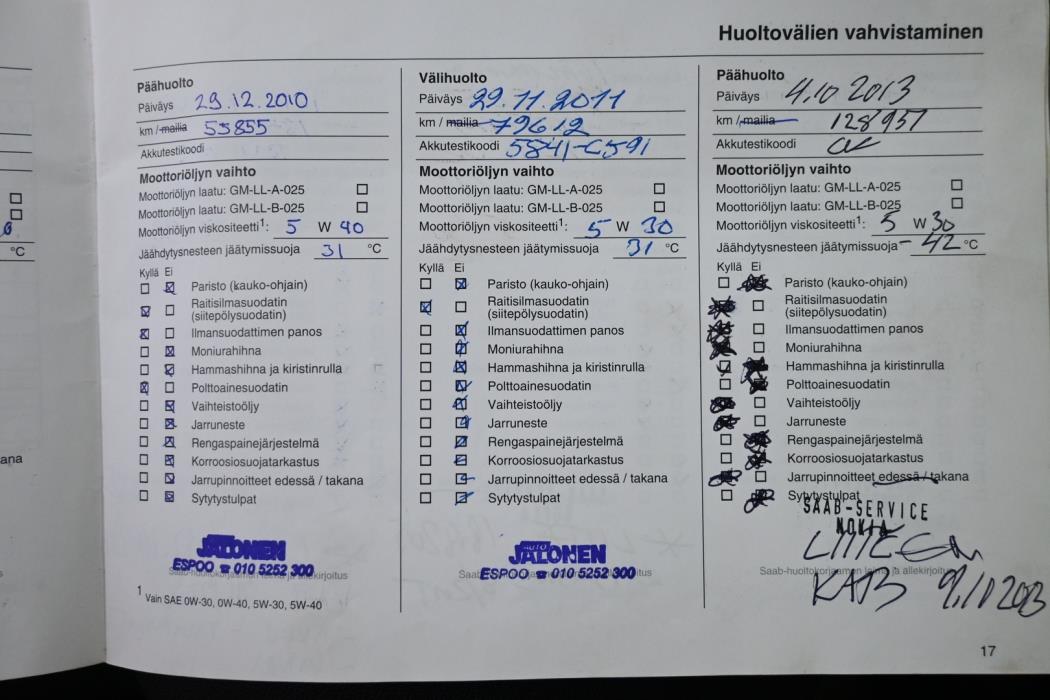 Huoltovälien vahvistaminen
Päähuolto
Päiväys 29.12.2010
km / mailia 53855
Akkutestikoodi
Moottoriöljyn vaihto
Moottoriöljyn laatu: GM-LL-A-025
Moottoriöljyn laatu: GM-LL-B-025
Moottoriöljyn viskositeetti1: 5 W 40
Jäähdytysnesteen jäätymissuoja 31 °C
Kyllä Ei
Paristo (kauko-ohjain)
Raitisilmasuodatin
(siitepölysuodatin)
Ilmansuodattimen panos
Moniurahihna
Hammashihna ja kiristinrulla
Polttoainesuodatin
Vaihteistoöljy
Jarruneste
Rengaspainejärjestelmä
Korroosiosuojatarkastus
Jarrupinnoitteet edessä / takana
Sytytystulpat
JALONEN
ESPOO ☎ 010 5252 300
1 Vain SAE 0W-30, 0W-40, 5W-30, 5W-40
Välihuolto
Päiväys 29.11.2011
km / mailia 79612
Akkutestikoodi 5841-C591
Moottoriöljyn vaihto
Moottoriöljyn laatu: GM-LL-A-025
Moottoriöljyn laatu: GM-LL-B-025
Moottoriöljyn viskositeetti1: 5 W 30
Jäähdytysnesteen jäätymissuoja 31 °C
Kyllä Ei
Paristo (kauko-ohjain)
Raitisilmasuodatin
(siitepölysuodatin)
Ilmansuodattimen panos
Moniurahihna
Hammashihna ja kiristinrulla
Polttoainesuodatin
Vaihteistoöljy
Jarruneste
Rengaspainejärjestelmä
Korroosiosuojatarkastus
Jarrupinnoitteet edessä / takana
Sytytystulpat
AUTO
JALONEN
ESPOO ☎ 010 5252 300
Päähuolto
Päiväys 4.10 2013
km / mailia 128957
Akkutestikoodi ok
Moottoriöljyn vaihto
Moottoriöljyn laatu: GM-LL-A-025
Moottoriöljyn laatu: GM-LL-B-025
Moottoriöljyn viskositeetti1: 5 W 30
Jäähdytysnesteen jäätymissuoja -42 °C
Kyllä Ei
Paristo (kauko-ohjain)
Raitisilmasuodatin
(siitepölysuodatin)
Ilmansuodattimen panos
Moniurahihna
Hammashihna ja kiristinrulla
Polttoainesuodatin
Vaihteistoöljy
Jarruneste
Rengaspainejärjestelmä
Korroosiosuojatarkastus
Jarrupinnoitteet edessä / takana
Sytytystulpat
SAAB-SERVICE
NOKIA
Saab-huoltokorjaamon leima ja allekirjoitus
17
°C
ana